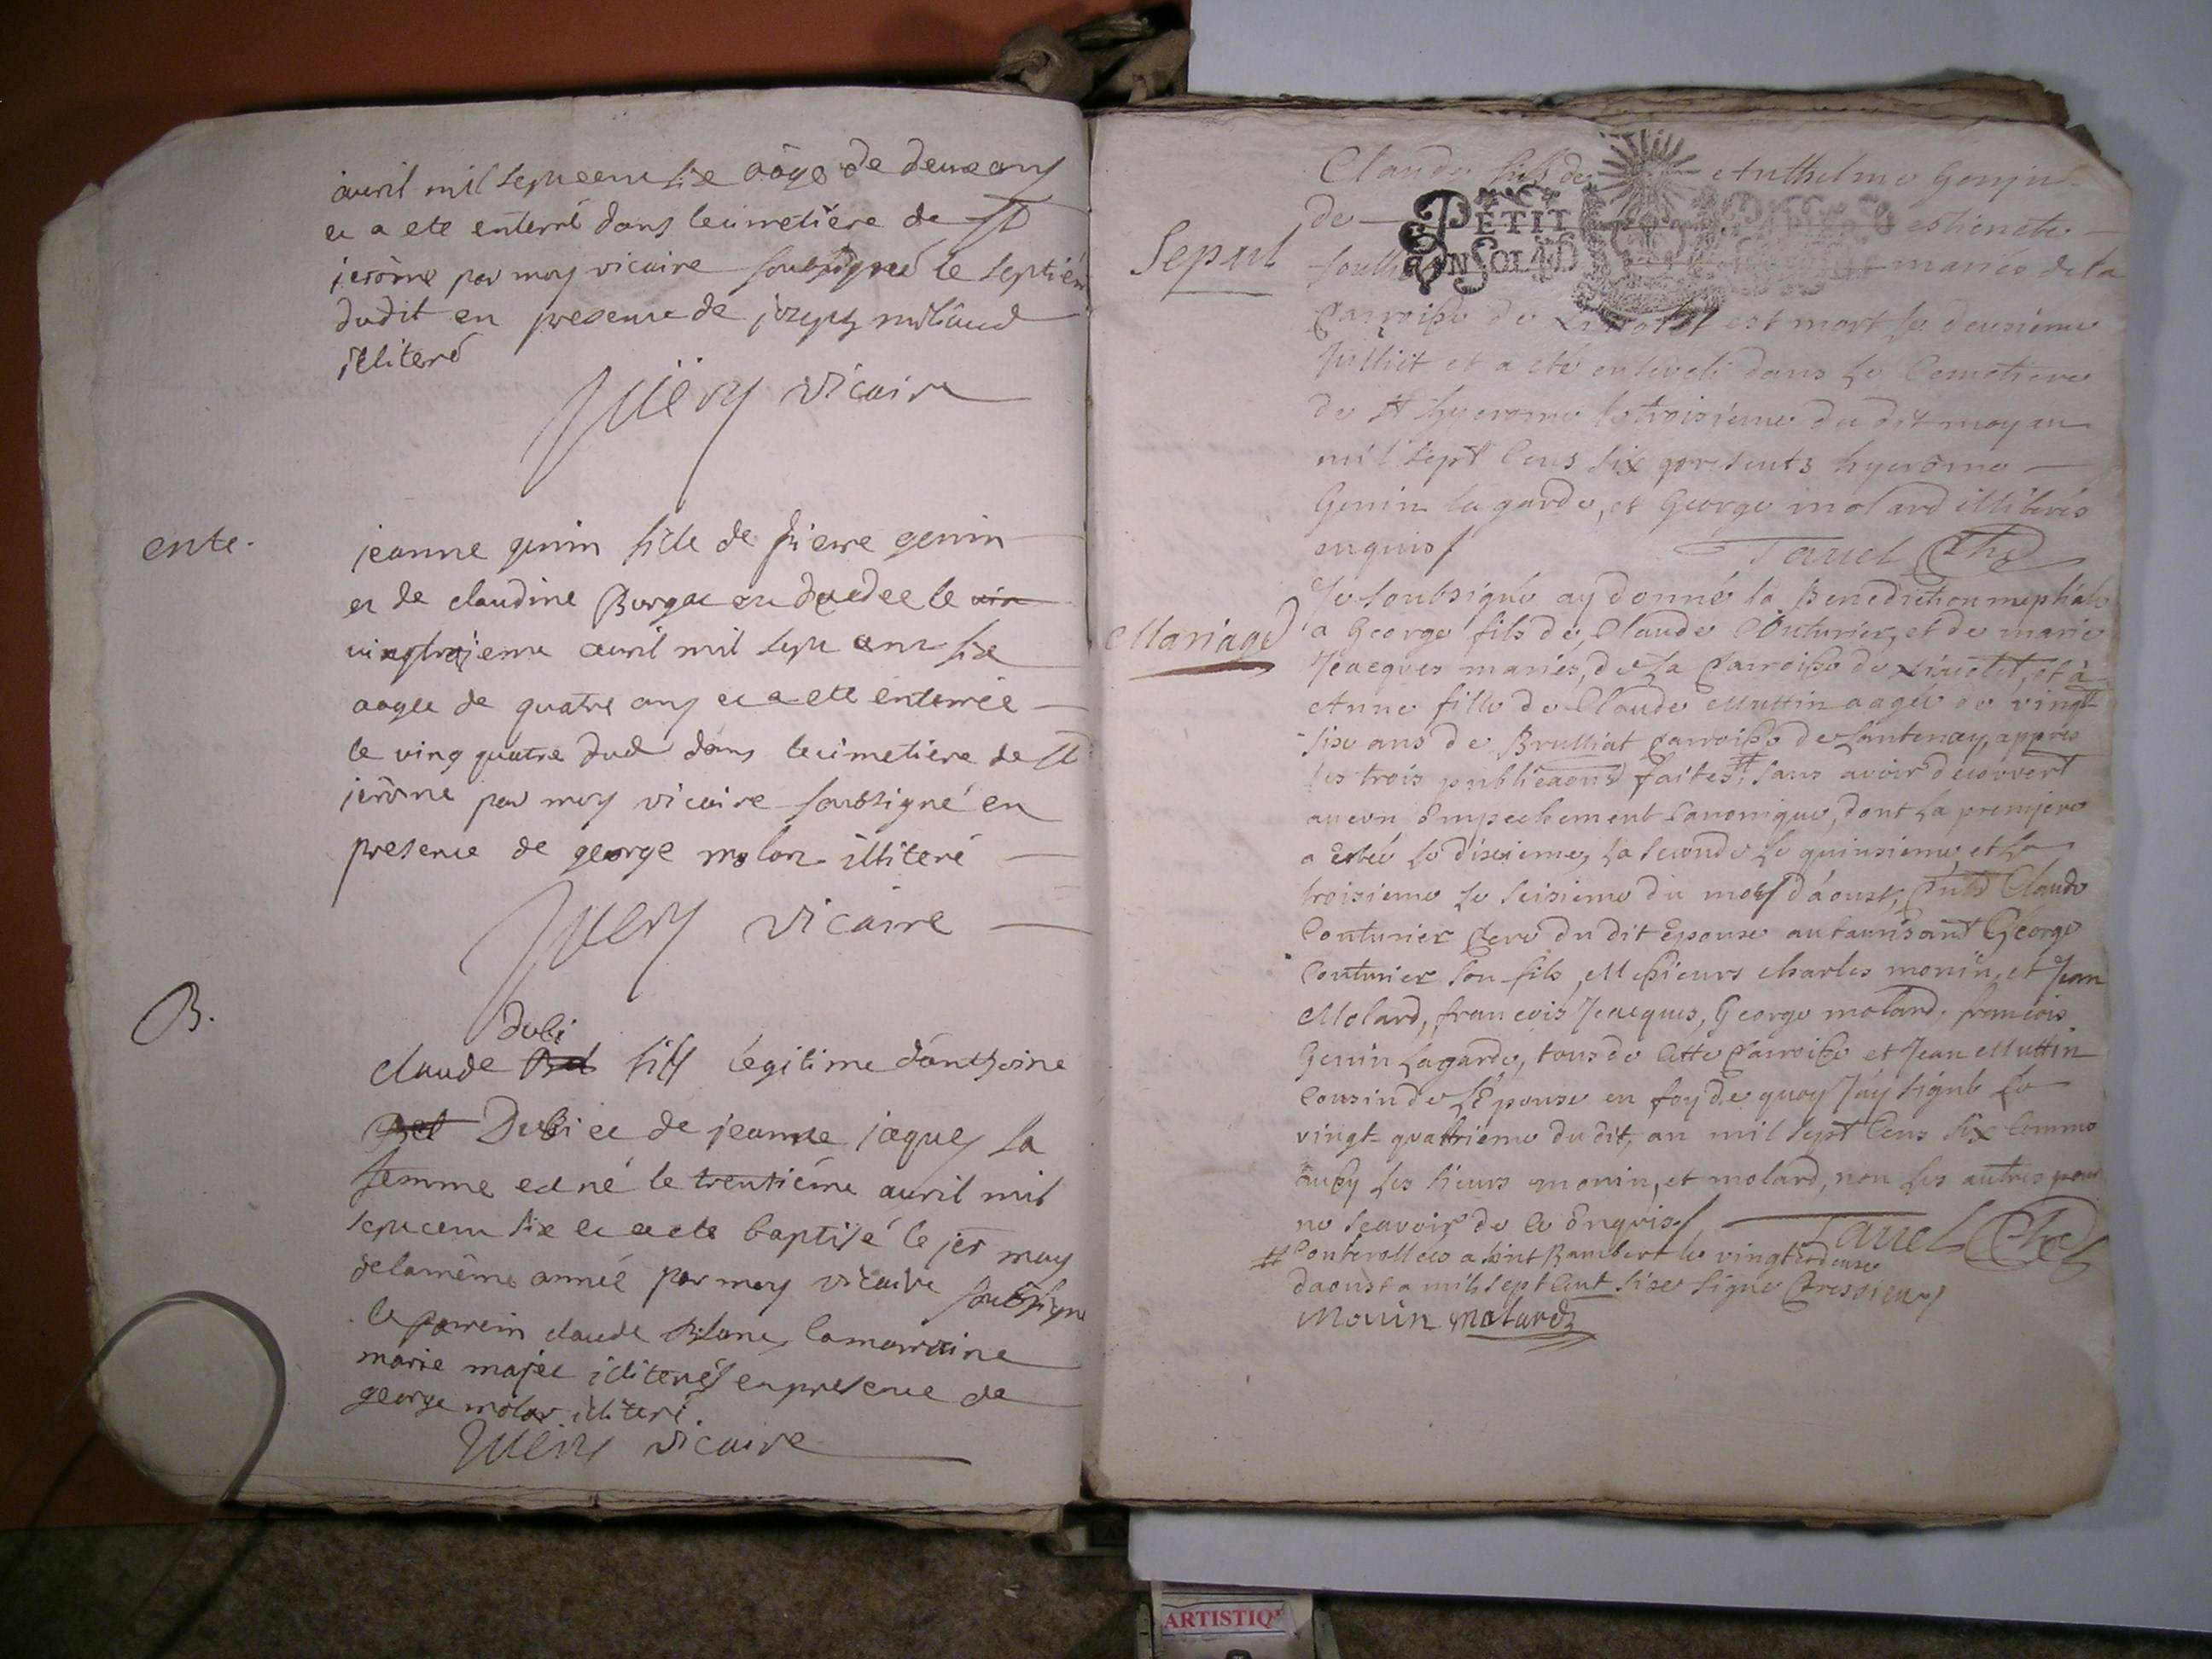 avril mil sepucenu six aâge de deux ans
ea a ete enterré dans lecimetiére de st
jerôme par moy vicaire soubsigné le septiém
dudit en presense de joseph milliaud
illiteré
vicaire
ente.
jeanne genin fille de pierre genin
ea de claudine Borgae decedee le vin
vingtroisieme avril mil sepu cent six
aagee de quatre ans ea a ete enterrée
le ving quatre dud dans lecimetiere de st
jerôme par moy vicaire soubsigné en
presence de george molar illiteré
vicaire
B.
Dubi
claude fils legitime d'anthoine
Dubi ea de jeanne jaques sa
femme ea né le trentiéme avril mil
sepucenu six ea a ete baptisé le jer may
delamême année par moy vicaire soubsigné
le parrein claude Blanc, lamarraine
marie illiterés enpresence de
george molar illiteré.
vicaire
Sepul
Claude fils de Anthelme Genin
de estienete
PETIT
EN SOL 4D
mariés de la
Parroisse de est mort le deusiéme
Julliet et a été enseveli dans le Cemetiere
de st hyerosme le troisiéme du dit moy an
mil sept Cens six presents hyerôme
Genin lagarde, et George molard illiterés
enquis/ Tavel
Mariage
Je soubsigné ay donné la Benediction nuptiale
a George fils de Claude Couturier, et de marie
Jeacques mariés, de La Parroisse de et à
Anne fille de Claude Muttin aagée de vingt
six ans de Brulliat Parroisse de Lantenay, appres
les trois publicaons faites # sans avoir decouvert
aucun Empechement Canonique, dont la premiere
a Estée le disieme, La seconde Le quinsieme et La
troisieme le seisieme du moys d'aoust, Claude
Couturier Pere du dit Epoux authorisant George
Couturier son fils, Messieurs charles monin, et Jean
Molard, francois Jeacques, George molard, francois
Genin Lagarde, tous de Cette Parroisse et Jean Muttin
Cousin de L'Epouse en foy de quoy J'ay signé Le
vingt-quattriéme du dit, an mil sept Cens six Comme
aussy Les sieurs monin, et molard, non Les autres pour
ne sçavoir de ce Enquis/ Tavel
# Controllées a saint Rambert le vingt et deuse
daoust a mil sept Cent sixe signé
Monin molard
ARTISTIQ